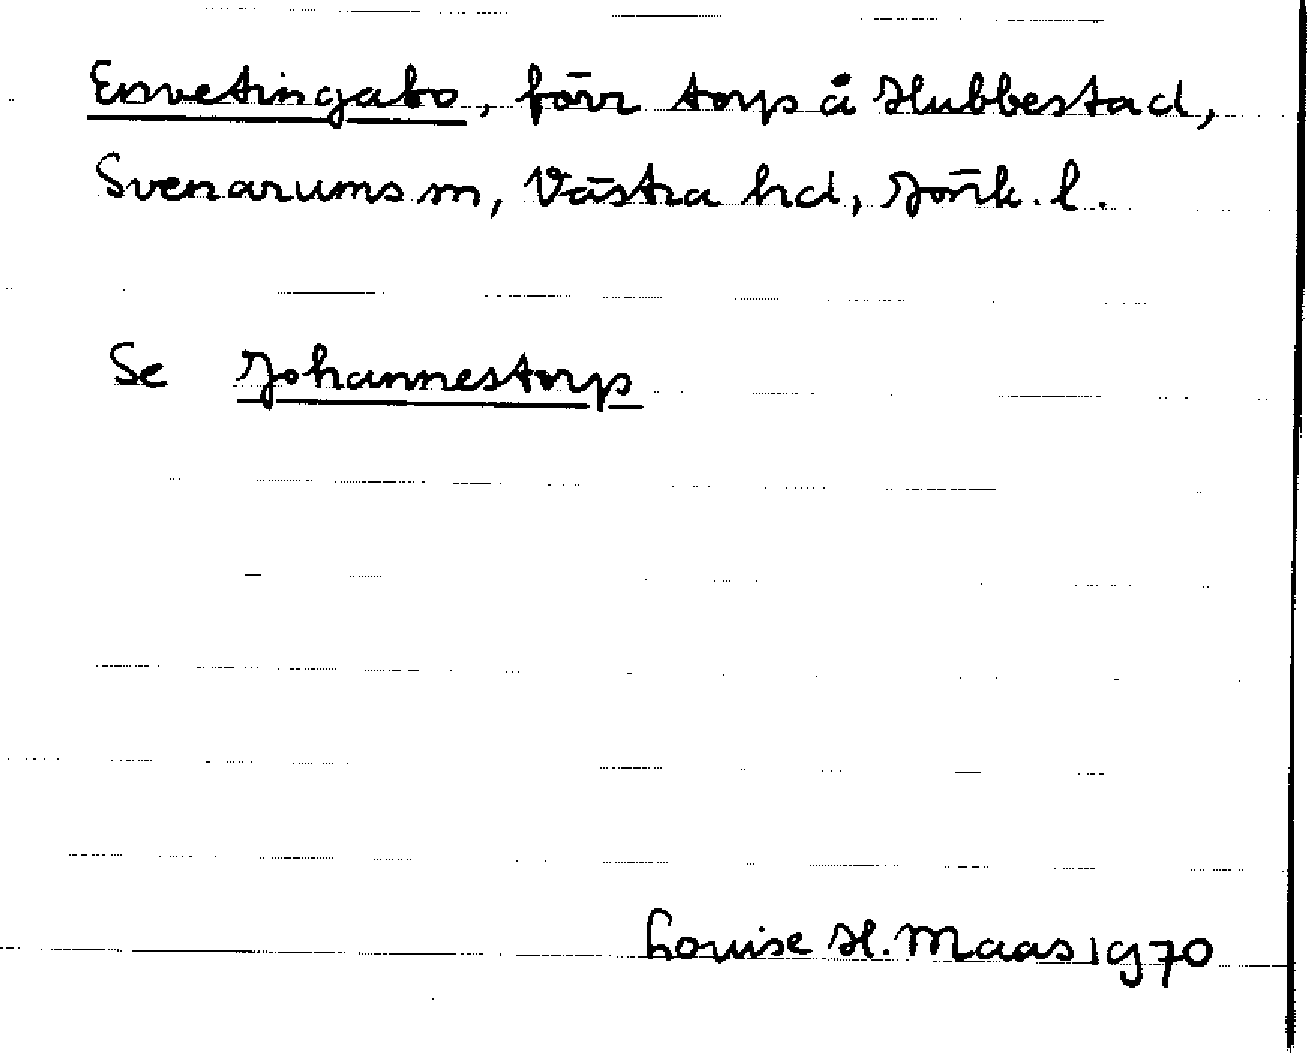 Envetingabo, förr torp å Hubbestad,
Svenarums sn, Västra hd, Jönk. l.
Se Johannestorp
Louise H. Maas 1970